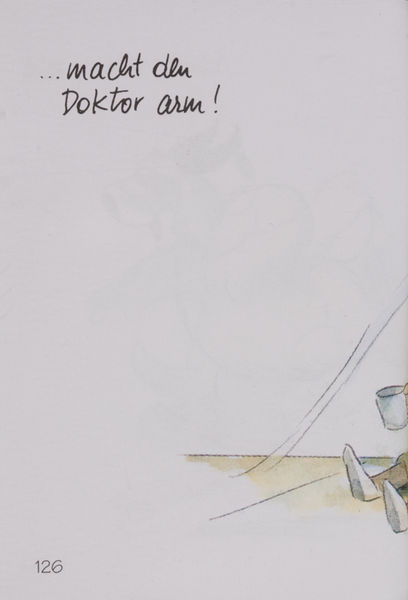 ...macht den
Doktor arm!
126